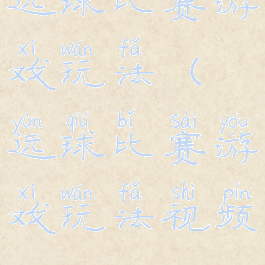 运球比赛游
xì wán fǎ
戏玩法（
yùn qiú bǐ sài yóu
运球比赛游
xì wán fǎ shì pín
戏玩法视频